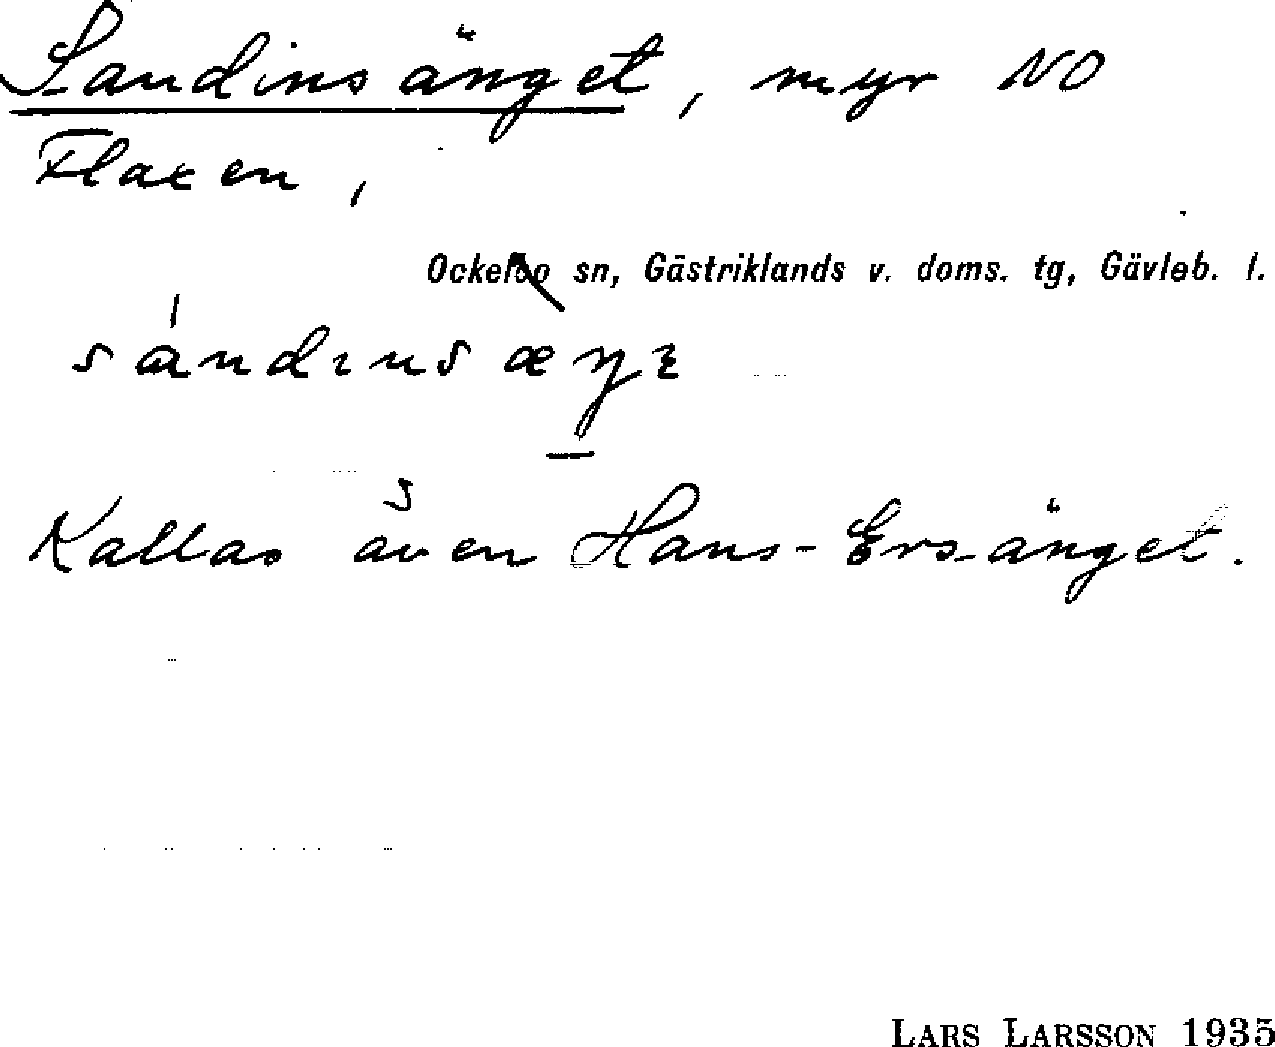 Sandinsänget, myr NO
Flaxen,
Ockelbo sn, Gästriklands v. doms. tg, Gävleb. l.
Kallas även Hans-Ersänget.
LARS LARSSON 1935